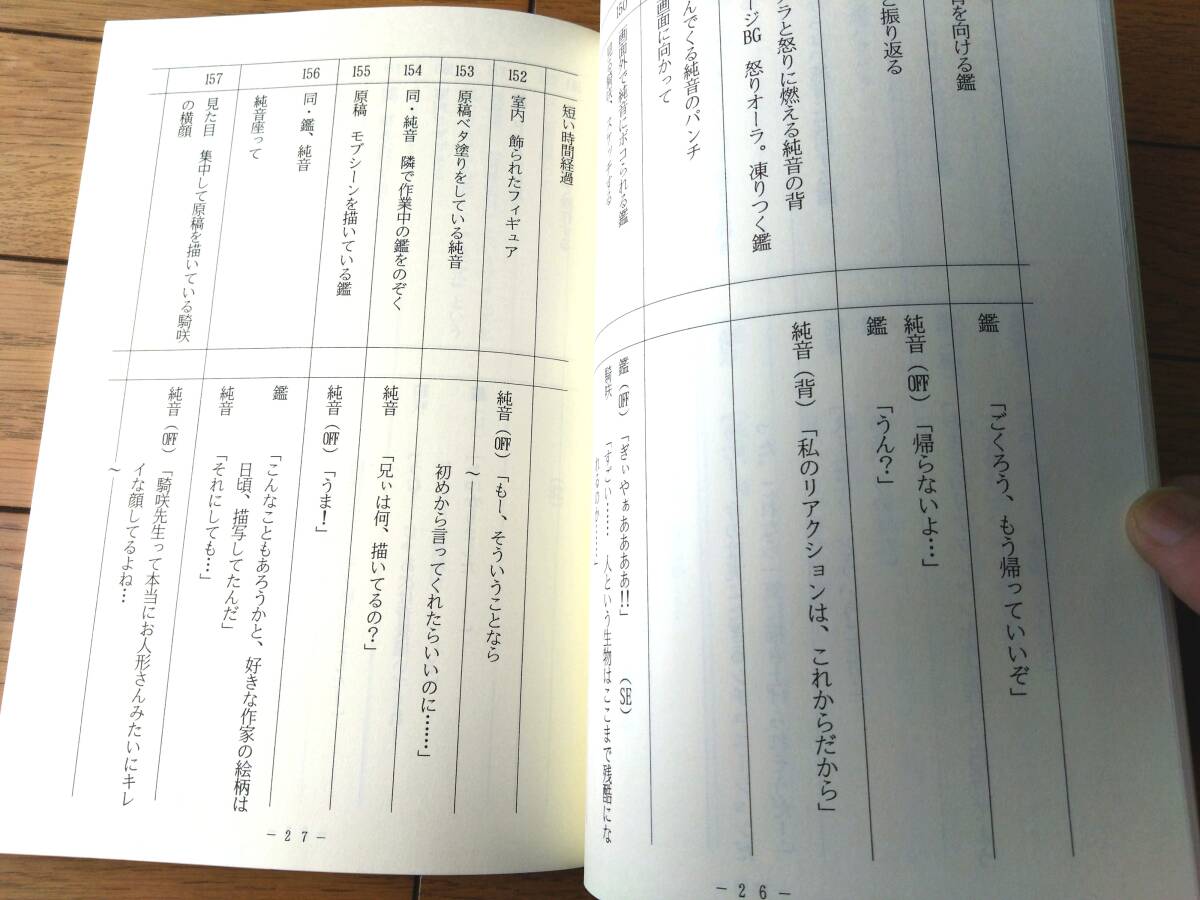 音を向ける鑑
鑑
「ごくろう、もう帰っていいぞ」
と振り返る
純音（OFF）「帰らないよ…」
鑑
「うん？」
ラと怒りに燃える純音の背
ージBG　怒りオーラ。凍りつく鑑
純音（背）「私のリアクションは、これからだから」
んでくる純音のパンチ
画面に向かって
150
画面外で純音にボコられる鑑
鑑（OFF）「ぎぃやぁあああ!!」　（SE）
騎咲　「すごい……　人という生物はここまで残酷にな
－26－
短い時間経過
152
室内　飾られたフィギュア
純音（OFF）「もー、そういうことなら
～
153
原稿ベタ塗りをしている純音
初めから言ってくれたらいいのに……」
154
同・純音　隣で作業中の鑑をのぞく
純音　「兄ぃは何、描いてるの？」
155
原稿　モブシーンを描いている鑑
純音（OFF）「うま！」
156
同・鑑、純音
鑑　「こんなこともあろうかと、好きな作家の絵柄は
日頃、描写してたんだ」
純音座って
純音　「それにしても…」
157
見た目　集中して原稿を描いている騎咲
の横顔
純音（OFF）「騎咲先生って本当にお人形さんみたいにキレ
イな顔してるよね…
～
－27－